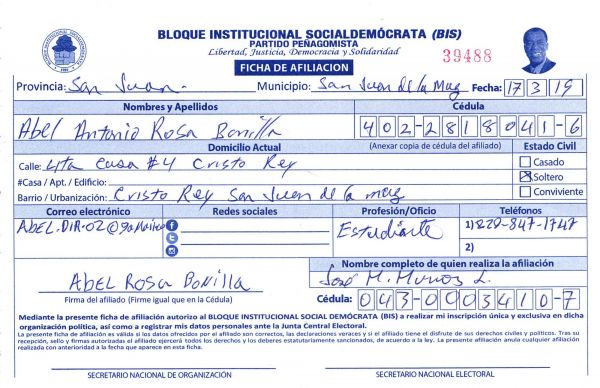 BLOQUE INSTITUCIONAL SOCIALDEMÓCRATA (BIS)
PARTIDO PEÑAGOMISTA
Libertad, Justicia, Democracia y Solidaridad
39488
FICHA DE AFILIACION
Provincia: San Juan. Municipio: San Juan de la Mag Fecha: 17 3 19
Nombres y Apellidos Cédula
Abel Antonio Rosa Bonilla 402-2818041-6
Domicilio Actual (Anexar copia de cédula del afiliado) Estado Civil
Calle: 4ta casa #4 Cristo Rey Casado
#Casa / Apt. / Edificio: Soltero
Barrio / Urbanización: Cristo Rey San Juan de la mag Conviviente
Correo electrónico Redes sociales Profesión/Oficio Teléfonos
Estudiante 1) 829-847-1747
2)
Nombre completo de quien realiza la afiliación
Abel Rosa Bonilla José M. L.
Firma del afiliado (Firme igual que en la Cédula) Cédula: 043-0003410-7
Mediante la presente ficha de afiliación autorizo al BLOQUE INSTITUCIONAL SOCIAL DEMÓCRATA (BIS) a realizar mi inscripción única y exclusiva en dicha
organización política, así como a registrar mis datos personales ante la Junta Central Electoral.
La presente ficha de afiliación es válida si los datos ofrecidos por el afiliado son correctos, las declaraciones veraces y si el afiliado tiene el disfrute de sus derechos civiles y políticos. Tras su
recepción, sello y firmas autorizadas el afiliado ejercerá todos los derechos y los deberes estatutariamente sancionados, de acuerdo a la ley. La presente afiliación anula cualquier afiliación
realizada con anterioridad a la fecha que aparece en esta ficha.
SECRETARIO NACIONAL DE ORGANIZACIÓN SECRETARIO NACIONAL ELECTORAL